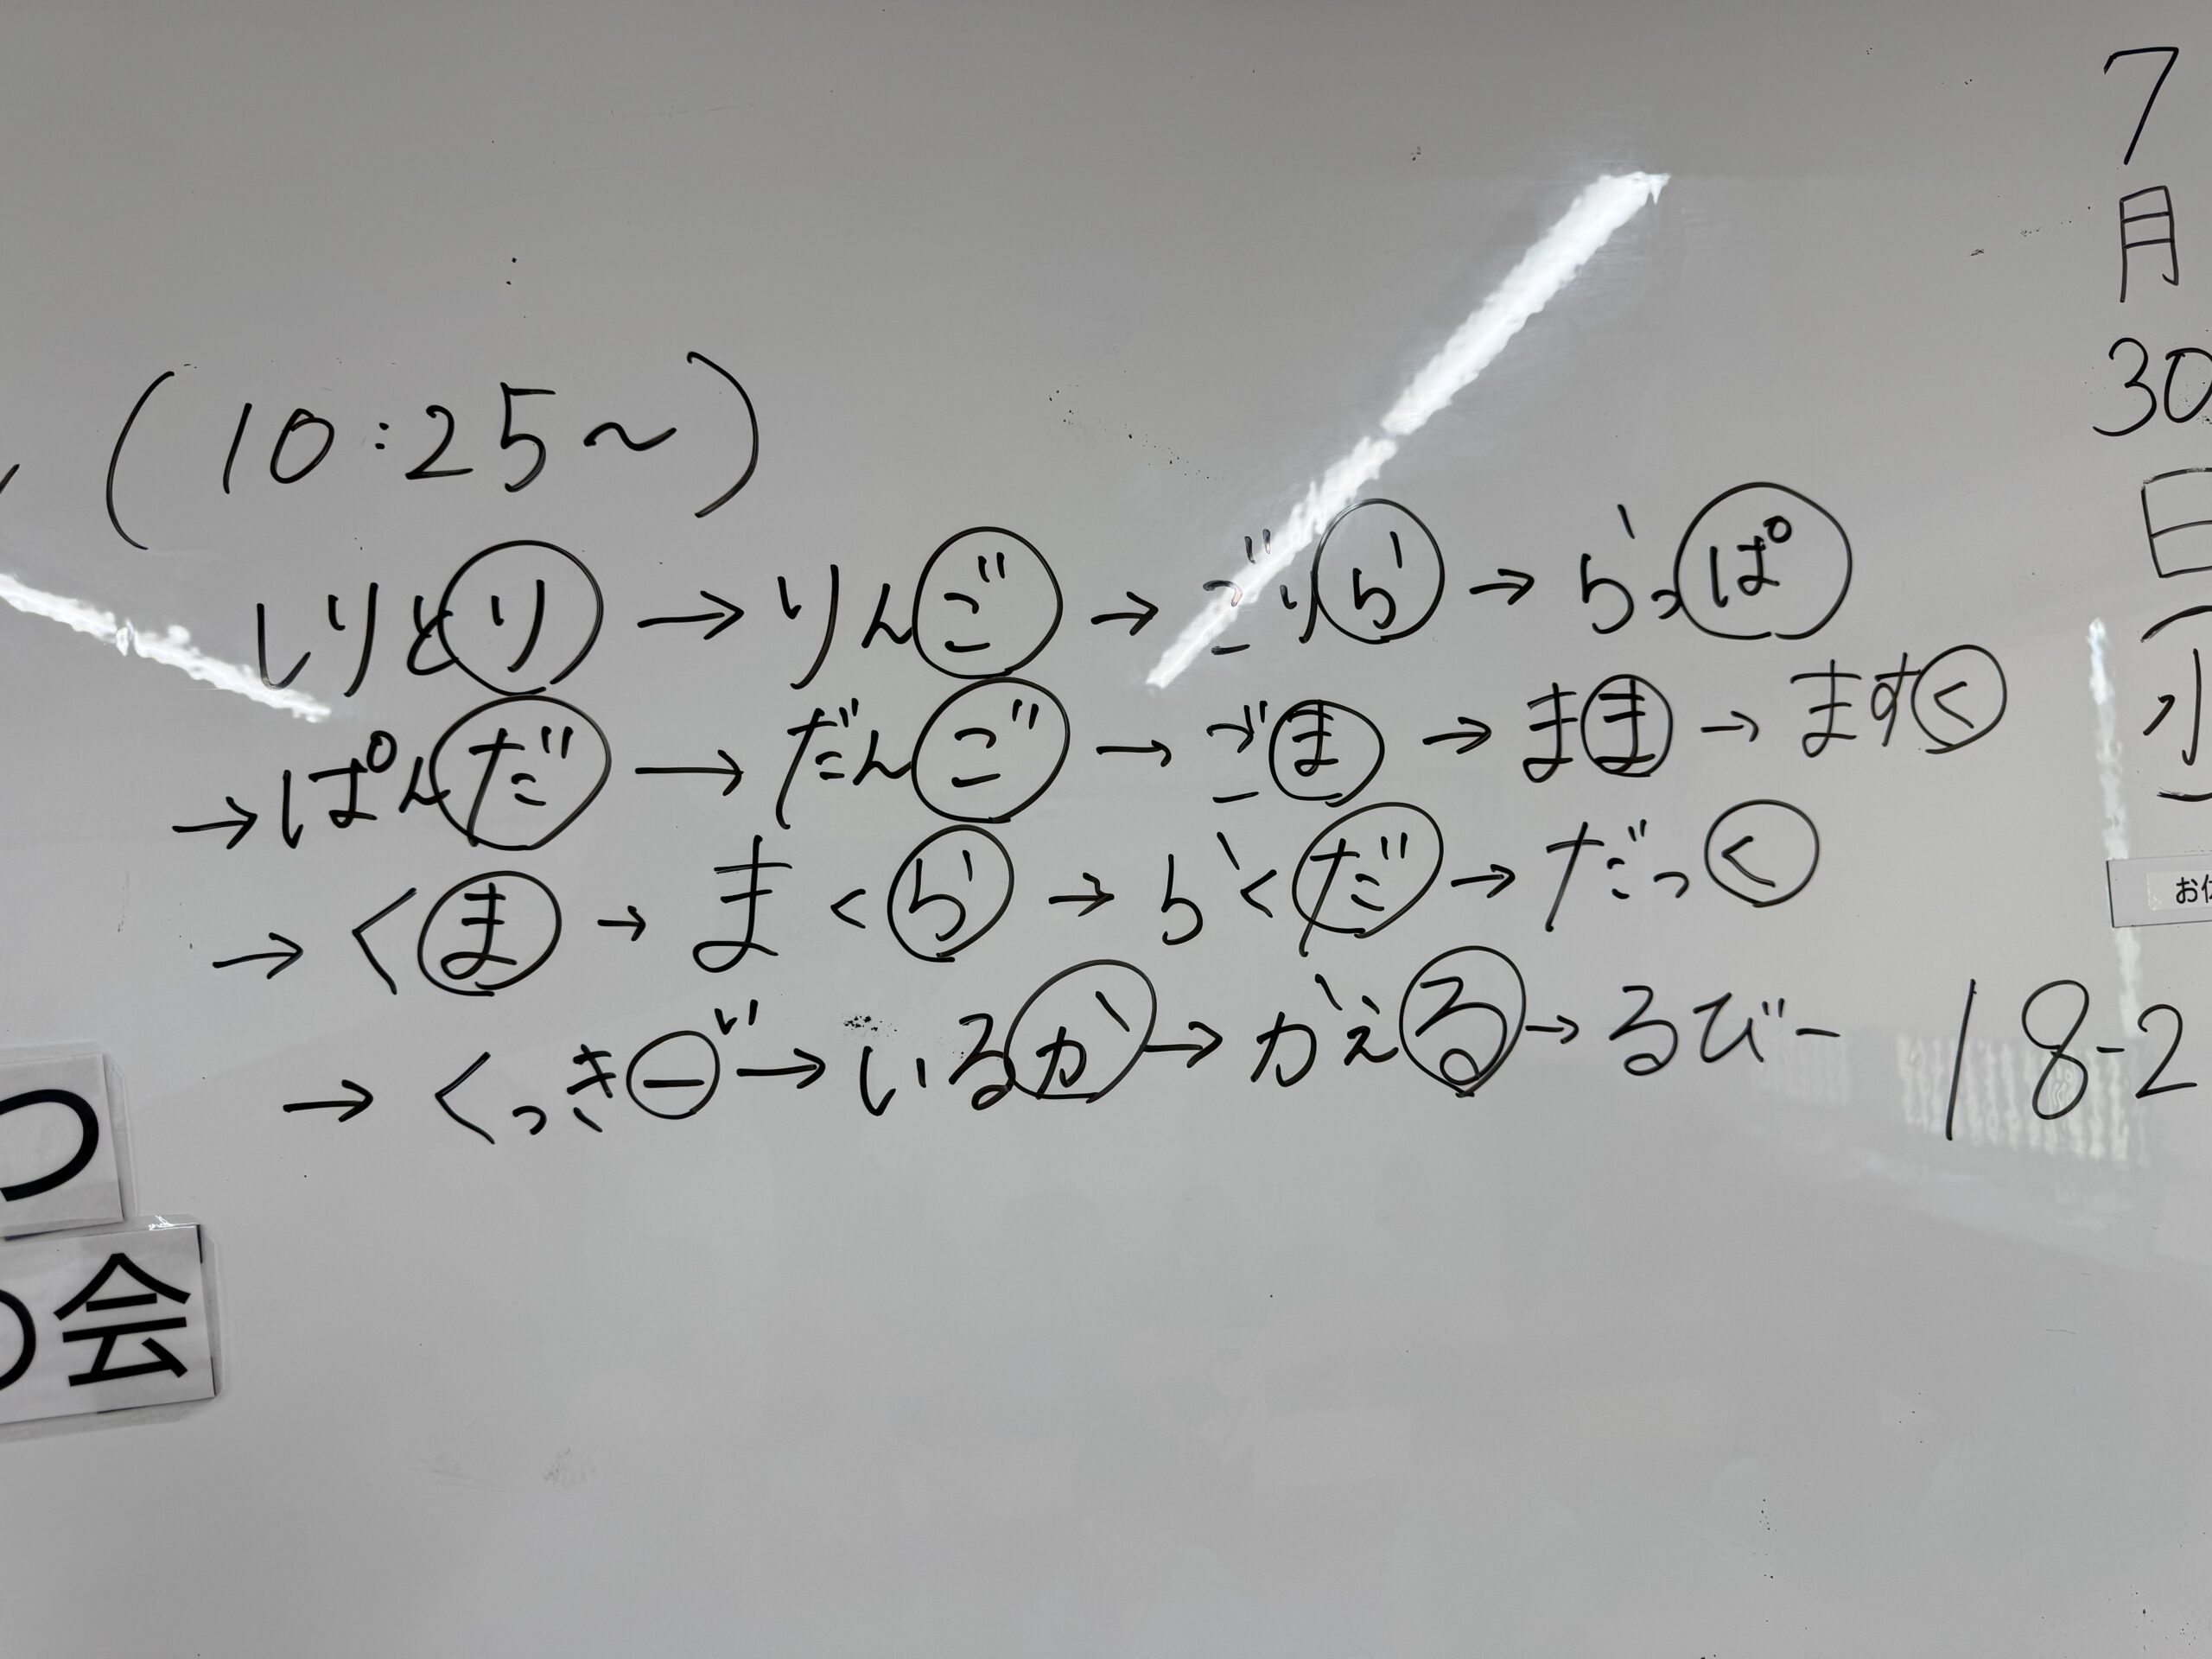 (10:25~)
しりとり→りんご→ごりら→らっぱ
→ぱんだ→だんご→ごま→まま→ますく
→くま→まくら→らくだ→だっく
→くっきーい→いるか→かえる→るびー
18-2
7月30日(水)
お休
つ
の会